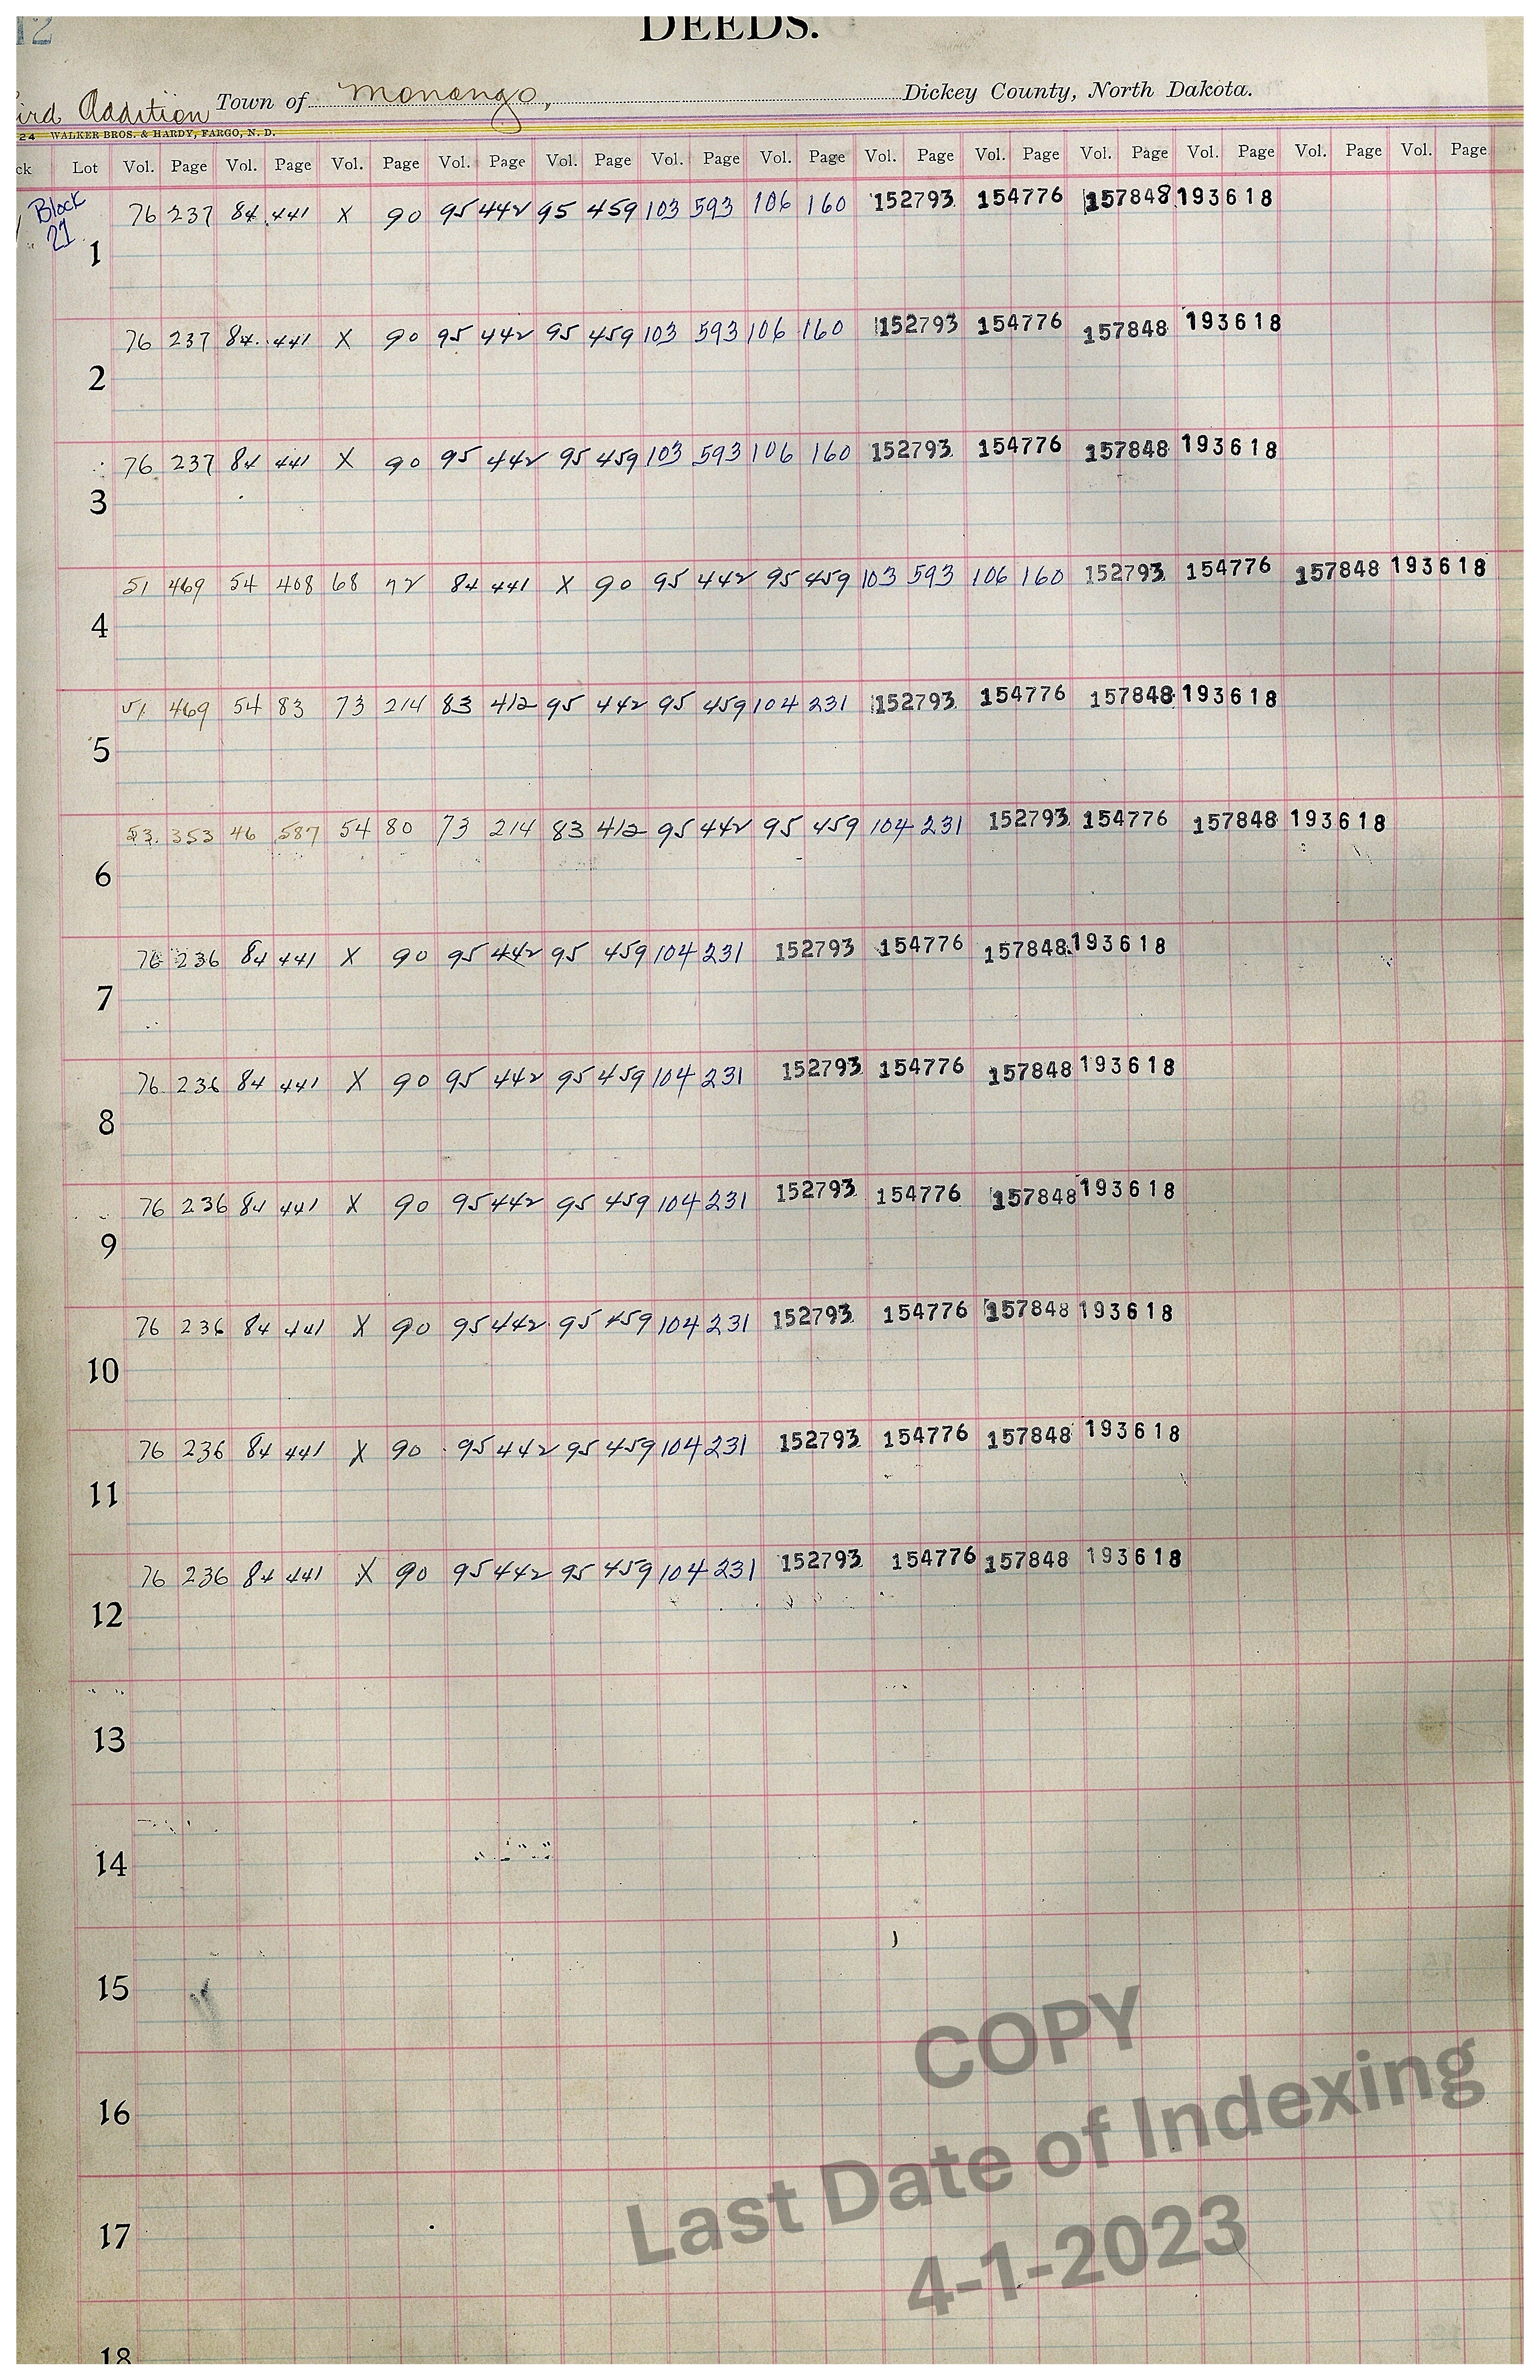 12
DEEDS.
ird Addition Town of Monango, Dickey County, North Dakota.
24 WALKER BROS. & HARDY, FARGO, N. D.
ck Lot Vol. Page Vol. Page Vol. Page Vol. Page Vol. Page Vol. Page Vol. Page Vol. Page Vol. Page Vol. Page Vol. Page Vol. Page Vol. Page
Block 76 237 84 441 X 90 95 442 95 459 103 593 106 160 152793 154776 157848 193618
21
1
76 237 84 441 X 90 95 442 95 459 103 593 106 160 152793 154776 157848 193618
2
76 237 84 441 X 90 95 442 95 459 103 593 106 160 152793 154776 157848 193618
3
51 469 54 408 68 72 84 441 X 90 95 442 95 459 103 593 106 160 152793 154776 157848 193618
4
51 469 54 83 73 214 83 412 95 442 95 459 104 231 152793 154776 157848 193618
5
53 353 46 587 54 80 73 214 83 412 95 442 95 459 104 231 152793 154776 157848 193618
6
76 236 84 441 X 90 95 442 95 459 104 231 152793 154776 157848 193618
7
76 236 84 441 X 90 95 442 95 459 104 231 152793 154776 157848 193618
8
76 236 84 441 X 90 95 442 95 459 104 231 152793 154776 157848 193618
9
76 236 84 441 X 90 95 442 95 459 104 231 152793 154776 157848 193618
10
76 236 84 441 X 90 95 442 95 459 104 231 152793 154776 157848 193618
11
76 236 84 441 X 90 95 442 95 459 104 231 152793 154776 157848 193618
12
13
14
15
16
17
18
COPY
Last Date of Indexing
4-1-2023